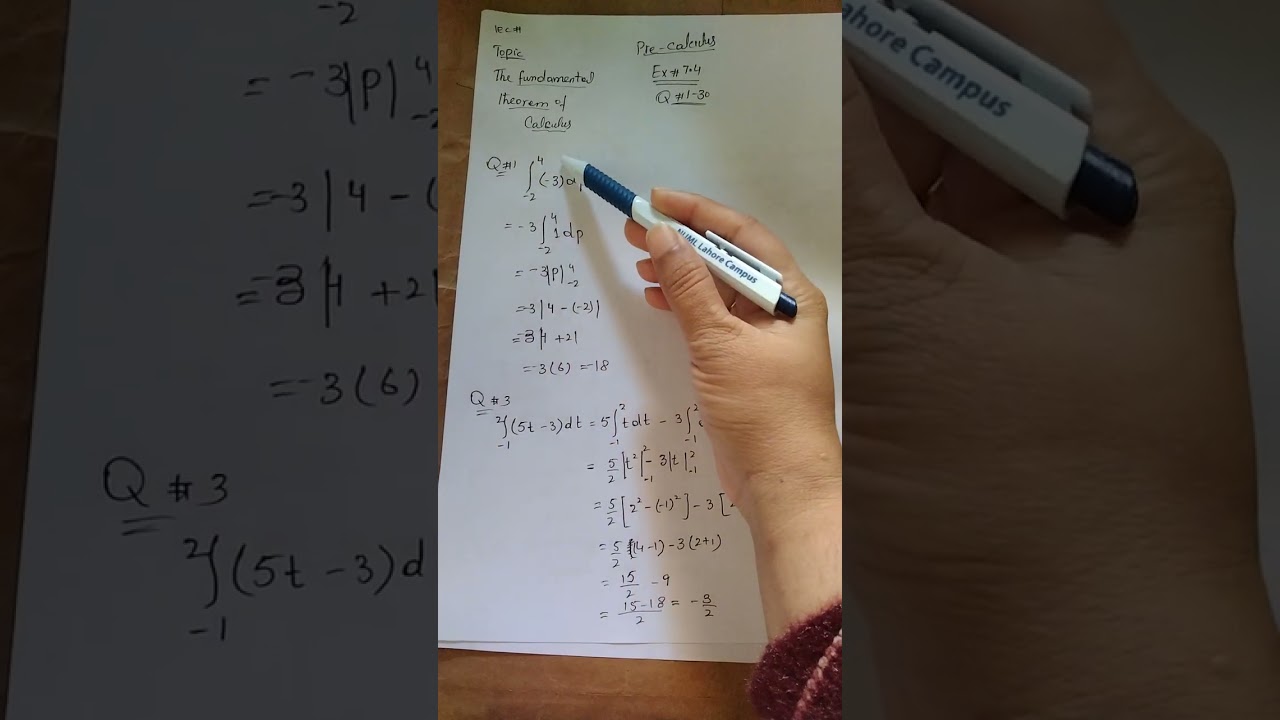 lec #
Topic
The fundamental
theorem of
Calculus
Pre-calculus
Ex # 7.4
Q # 1-30
Q #1 ∫₋₂⁴ (-3)d
= -3 ∫₋₂⁴ 1 dp
= -3|p|₋₂⁴
= -3|4 - (-2)|
= -3|4 + 2|
= -3(6) = -18
Q #3
∫₋₁² (5t - 3)dt = 5∫₋₁² t dt - 3∫₋₁²
= 5/2 |t²|₋₁² - 3|t|₋₁²
= 5/2 [2² - (-1)²] - 3[
= 5/2 (4 - 1) - 3(2+1)
= 15/2 - 9
= 15-18/2 = -3/2
NUML Lahore Campus
-2
= -3|p|₋₂⁴
= -3|4 - (
= -3|4 + 2|
= -3(6)
Q #3
∫₋₁² (5t - 3)d
ahore Campus